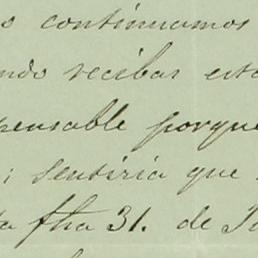 s continuamos
ando recibas esta
pensable porque
; sentiria que
ta fha 31. de